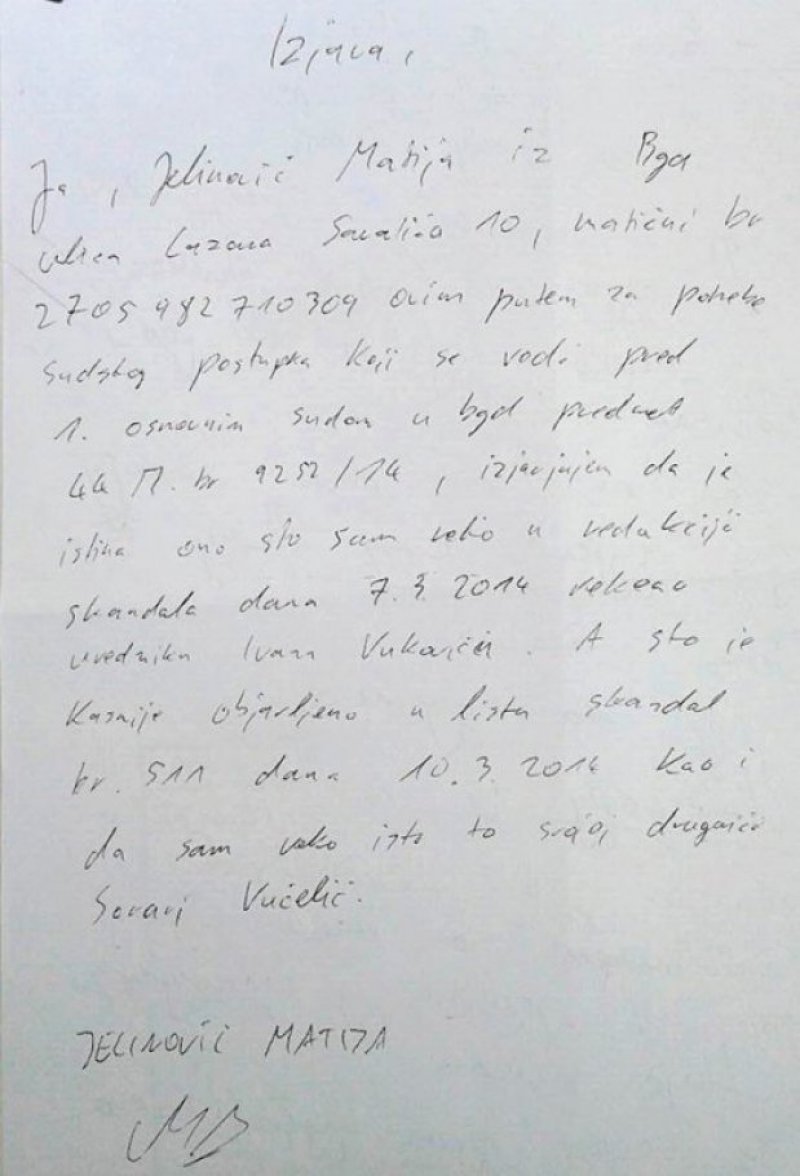 Izjava,
Ja, Jelinović Matija iz Bgd
ulica Lazara Savatića 10, matični br
2705982710309 ovim putem za potrebe
sudskog postupka koji se vodi pred
1. osnovnim sudom u bgd predmet
44 П. br 9252/14, izjavjujem da je
istina ono sto sam reko u redakciji
skandala dana 7.3.2014 rekao
uredniku Ivan Vukovicu. A sto je
kasnije objavljeno u listu skandal
br. 511 dana 10.3.2014 kao i
da sam reko isto to svojoj drugarici
Vučelić.
JELINOVIĆ MATIJA